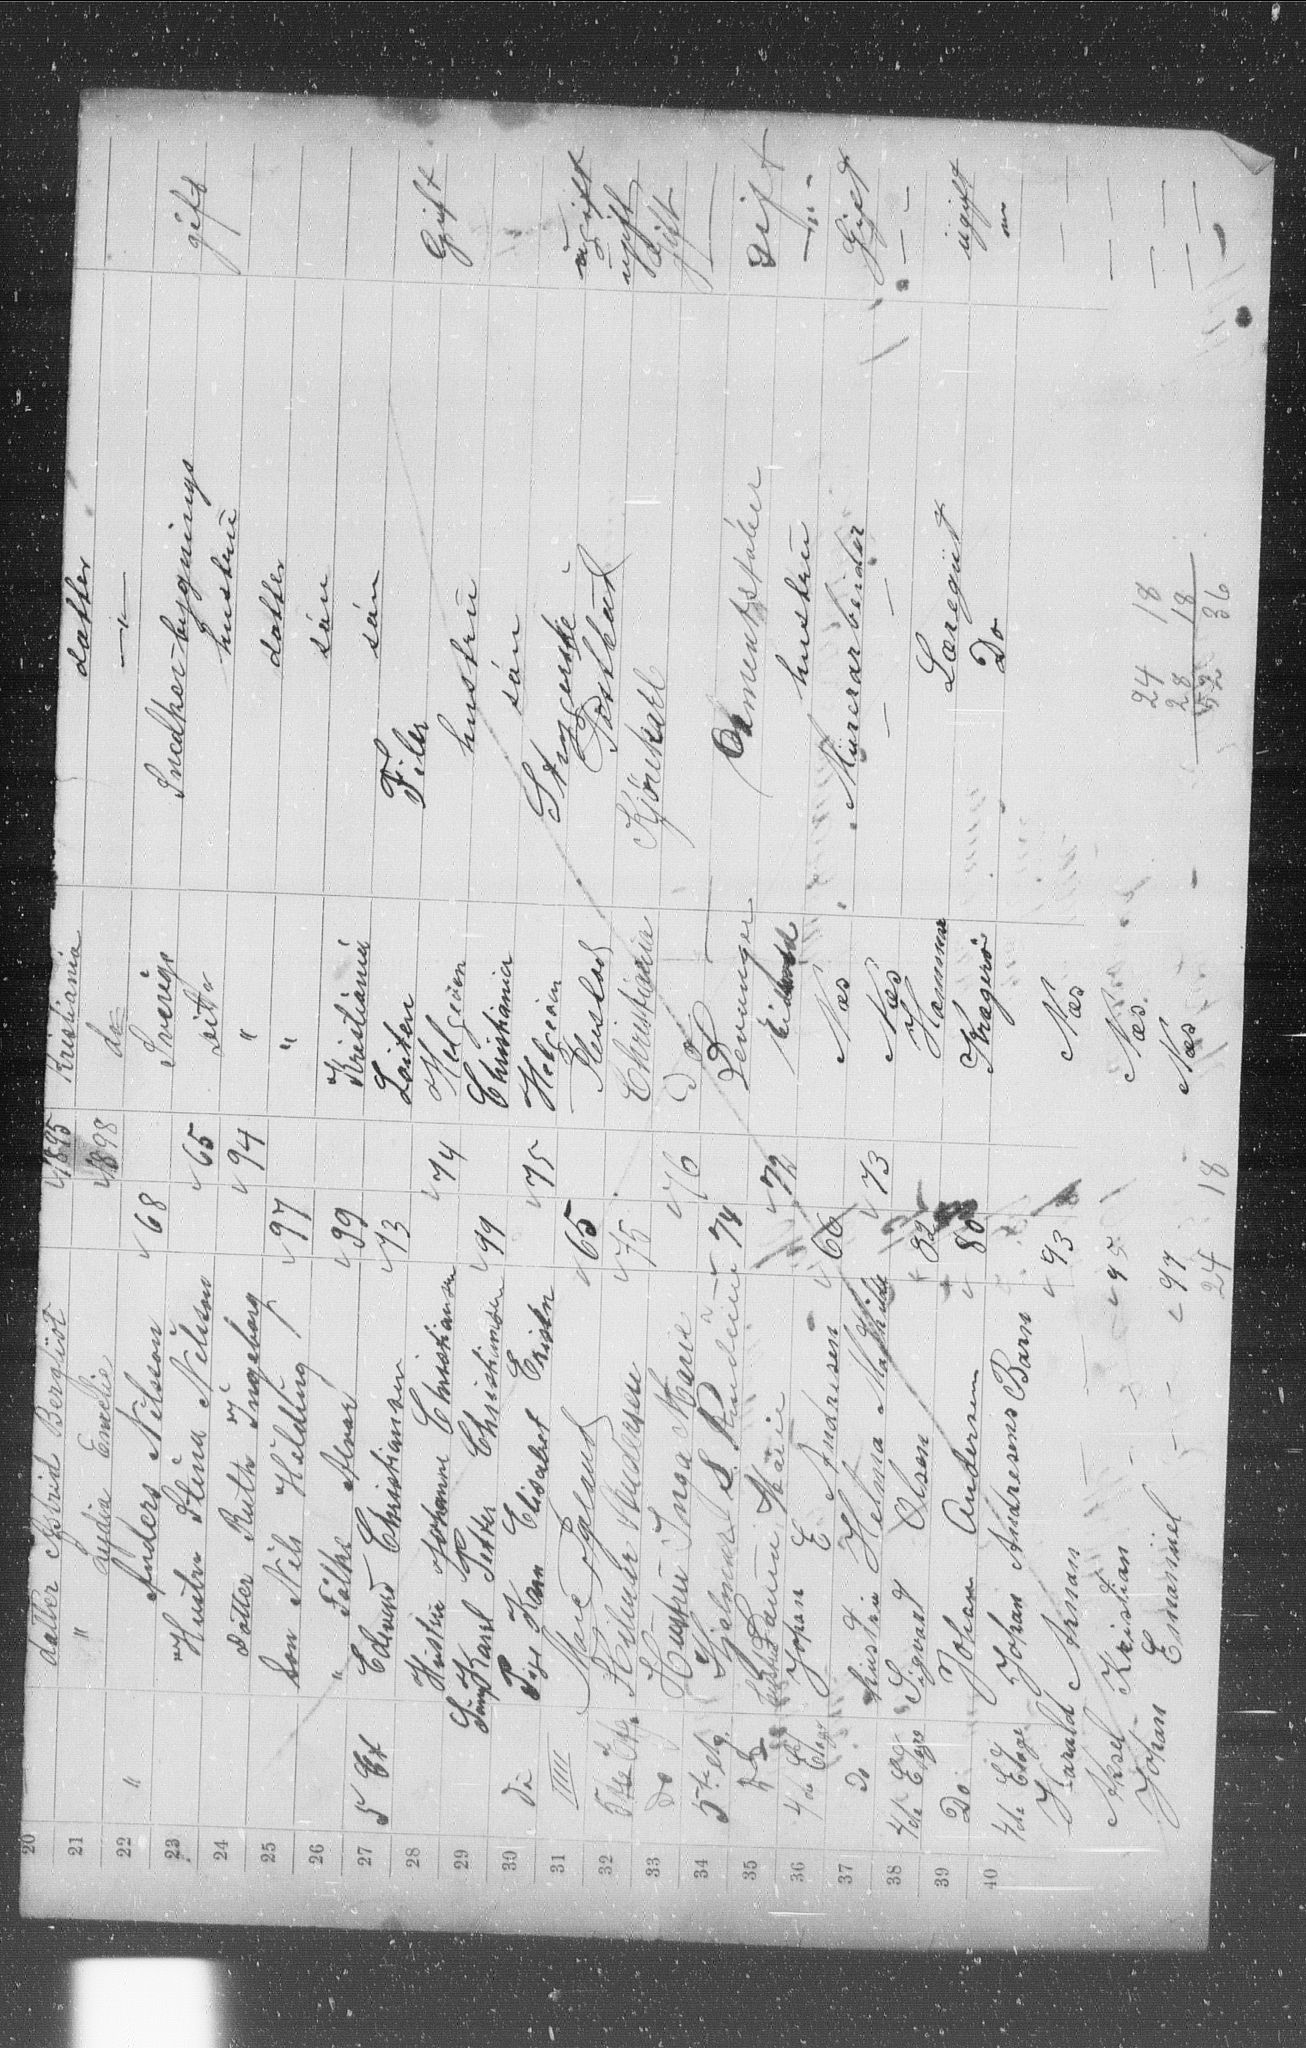 20 datter Astrid Bergliot 1895 Kristiania datter
21 " Lydia Emelie 1898 do —"—
22 " Anders Nilsson 68 Sverige Snedker-bygnings gift
23 Hustru Stina Nilsson 65 ditto hustru
24 datter Ruth Ingeborg 94 " datter
25 Son Nils Hilding 97 " són
26 " Folke Alvar 99 Kristiania són
27 5 Et Edvard Christiansen 73 Löiten Filer Gift
28 Hustru Johanne Christiansen 74 Helgeøen hustru
29 Søn Karl Petter Christiansen 99 Christiania són
30 Pige Karen Elisabet 75 Helgeøen Strygerske ugift
31 IIII Marie 65 ugift
32 5te Etg. Hilmar Andersen 75 Christiania Kjørekarl gift
33 Do Hustru Inga Marie 76 Do
34 5te etg. Hjalmar S. 74 Levanger Cementstøber gift
35 5 D hustru Marie 72 hustru —"—
36 4de Etage Johan E Andresen 66 Næs Murerarbeider Gift
37 Do hustru Helma Mathilde 73 Næs — — —"—
38 4de Etage Sigvart Olsen 82 Hammer Læregut ugift
39 Do Johan Andersen 80 Kragerö Do "
40 4de Etage Johan Andresens Barn
Harald Arman 93 Næs — —
Aksel Kristian — — 95 Næs — —
Johan Emanuel — — 97 Næs — —
24 18
24 18
28 18
52 36